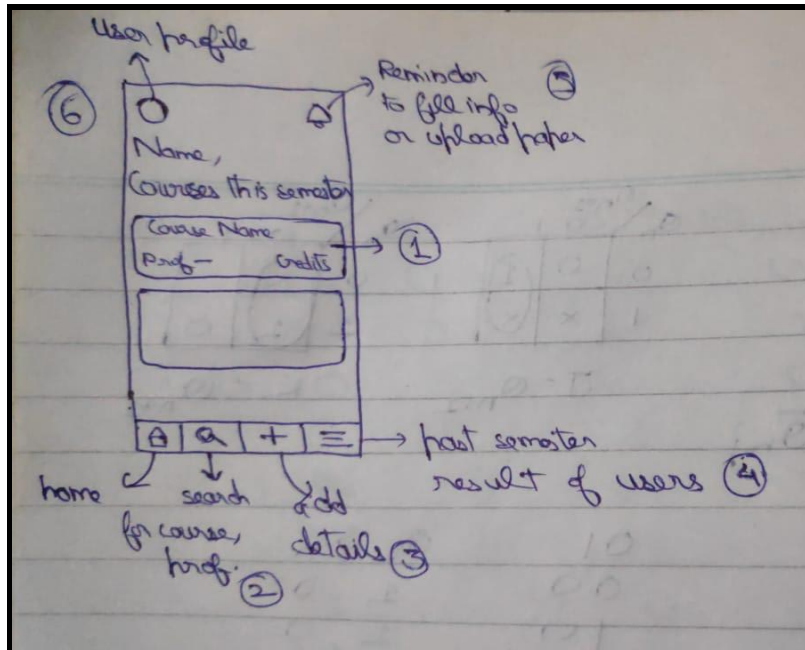 User profile
Reminder
to fill info
or upload paper
5
6
Name,
Courses this semester
Course Name
Prof-
Credits
1
+
past semester
result of users
4
home
search
for course,
prof.
2
Add
details
3